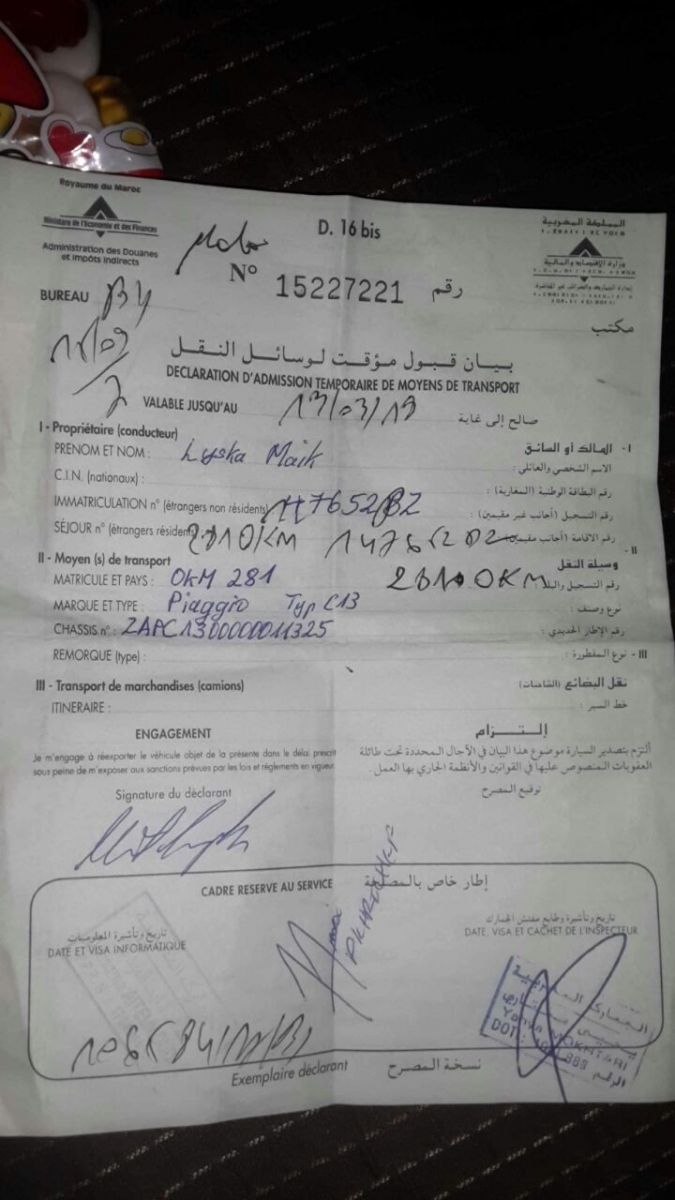 Royaume du Maroc
Ministère de l'Economie et des Finances
Administration des Douanes
et Impôts Indirects
D. 16 bis
المملكة المغربية
وزارة الاقتصاد والمالية
N° 15227221 رقم
BUREAU
مكتب
بيان قبول مؤقت لوسائل النقل
DECLARATION D'ADMISSION TEMPORAIRE DE MOYENS DE TRANSPORT
VALABLE JUSQU'AU 13/03/19 صالح إلى غاية
I - Propriétaire (conducteur) I - المالك أو السائق
PRENOM ET NOM : Lyska Maik الاسم الشخصي والعائلي :
C.I.N. (nationaux) : رقم البطاقة الوطنية (المغاربة) :
IMMATRICULATION n° (étrangers non résidents) 117652BZ رقم التسجيل (أجانب غير مقيمين) :
SÉJOUR n° (étrangers résidents) رقم الاقامة (أجانب
II - Moyen (s) de transport II - وسيلة النقل
MATRICULE ET PAYS : OKM 281 رقم التسجيل
MARQUE ET TYPE : Piaggio Typ C13 نوع وصنف :
CHASSIS n° : ZAPC1300000011325 رقم الإطار الحديدي :
REMORQUE (type) : III - نوع المقطورة :
III - Transport de marchandises (camions) نقل البضائع (الشاحنات)
ITINERAIRE : خط السير :
ENGAGEMENT إلتـــزام
Je m'engage à réexporter le véhicule objet de la présente dans le délai prescrit ألتزم بتصدير السيارة موضوع هذا البيان في الآجال المحددة تحت طائلة
sous peine de m'exposer aux sanctions prévues par les lois et réglements en vigueur العقوبات المنصوص عليها في القوانين والأنظمة الجاري بها العمل.
Signature du déclarant توقيع المصرح
CADRE RESERVE AU SERVICE إطار خاص بالمصلحة
تاريخ وتأشيرة المعلوميات تاريخ وتأشيرة وطابع مفتش الجمارك
DATE ET VISA INFORMATIQUE DATE, VISA ET CACHET DE L'INSPECTEUR
Exemplaire déclarant نسخة المصرح